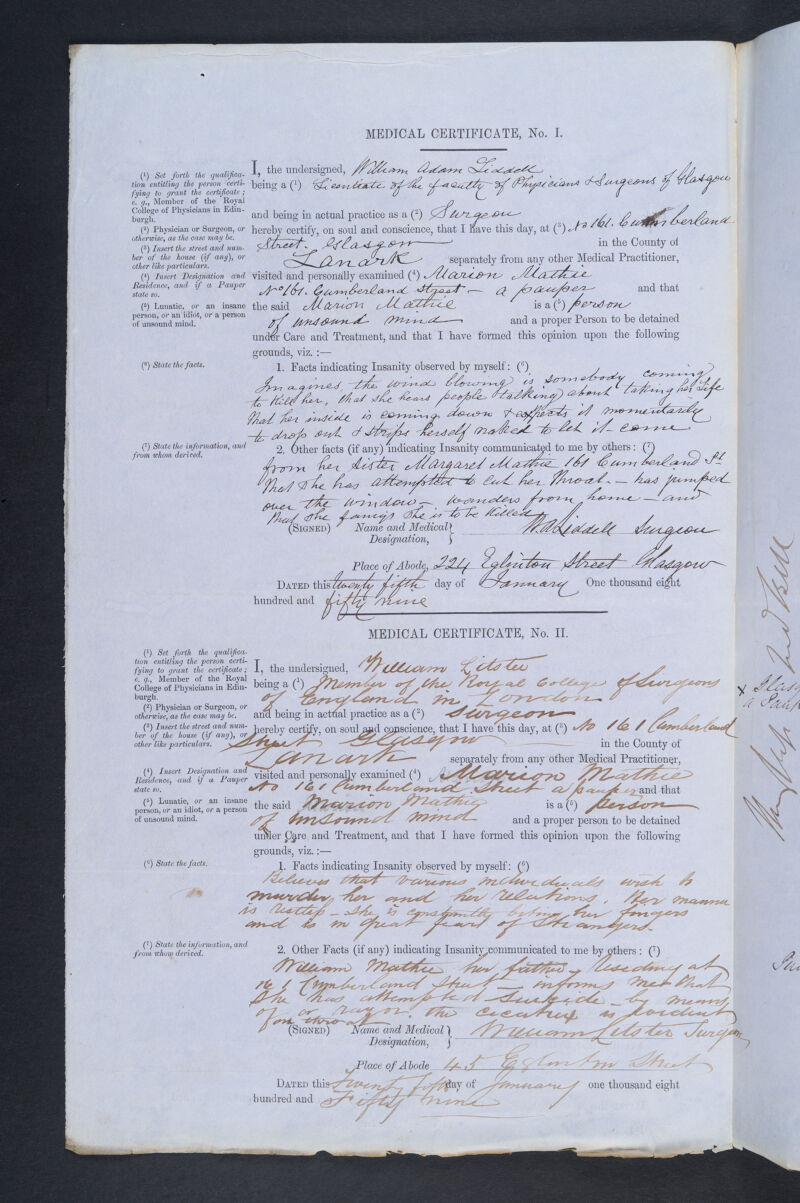 MEDICAL CERTIFICATE, No. I.
(1) Set forth the qualifica-
tion entitling the person certi-
fying to grant the certificate;
e. g., Member of the Royal
College of Physicians in Edin-
burgh.
(2) Physician or Surgeon, or
otherwise, as the case may be.
(3) Insert the street and num-
ber of the house (if any), or
other like particulars.
(4) Insert Designation and
Residence, and if a Pauper
state so.
(5) Lunatic, or an insane
person, or an idiot, or a person
of unsound mind.
I, the undersigned, William Adam Liddell
being a (1) Licentiate of the faculty of Physicians & Surgeons of Glasgow
and being in actual practice as a (2) Surgeon
hereby certify, on soul and conscience, that I have this day, at (3) No 161. Cumberland
Street. Glasgow in the County of
Lanark separately from any other Medical Practitioner,
visited and personally examined (4) Marion Mathie
No 161. Cumberland Street - a pauper and that
the said Marion Mathie is a (5) person
of unsound mind and a proper Person to be detained
under Care and Treatment, and that I have formed this opinion upon the following
grounds, viz. :—
(6) State the facts.
1. Facts indicating Insanity observed by myself: (6)
Imagines the wind blowing is somebody coming
to kill her, that she hears people talking about taking her life
that her inside is coming down & expects it momentarily
to drop out & strips herself naked to let it come
(7) State the information, and
from whom derived.
2. Other facts (if any) indicating Insanity communicated to me by others: (7)
from her Sister Margaret Mathie 161 Cumberland St
that she has attempted to cut her throat. - has jumped
over the window - wanders from home - and
that she fancys she is to be killed
(SIGNED) Name and Medical W. A. Liddell Surgeon
Designation,
Place of Abode, 224 Eglinton Street Glasgow
DATED this twenty fifth day of January One thousand eight
hundred and fifty nine
MEDICAL CERTIFICATE, No. II.
(1) Set forth the qualifica-
tion entitling the person certi-
fying to grant the certificate;
e. g., Member of the Royal
College of Physicians in Edin-
burgh.
(2) Physician or Surgeon, or
otherwise, as the case may be.
(3) Insert the street and num-
ber of the house (if any), or
other like particulars.
(4) Insert Designation and
Residence, and if a Pauper
state so.
(5) Lunatic, or an insane
person, or an idiot, or a person
of unsound mind.
I, the undersigned, William Litster
being a (1) Member of the Royal College of Surgeons
of England in London
and being in actual practice as a (2) Surgeon
hereby certify, on soul and conscience, that I have this day, at (3) No 161 Cumberland
Street Glasgow in the County of
Lanark separately from any other Medical Practitioner,
visited and personally examined (4) Marion Mathie
No 161 Cumberland Street a pauper and that
the said Marion Mathie is a (5) person
of unsound mind and a proper person to be detained
under Care and Treatment, and that I have formed this opinion upon the following
grounds, viz. :—
(6) State the facts.
1. Facts indicating Insanity observed by myself: (6)
Believes that various individuals wish to
murder her and her relations. Her manner
is restless - She is constantly biting her fingers
and is in great fear of strangers.
(7) State the information, and
from whom derived.
2. Other Facts (if any) indicating Insanity communicated to me by others: (7)
William Mathie her father, residing at
161 Cumberland Street - informs me that
She has attempted Suicide - by means
of a razor. the cicatrix is evident
on throat
(SIGNED) Name and Medical William Litster Surgeon
Designation,
Place of Abode 45 Eglinton Street
DATED this Twenty fifth day of January one thousand eight
hundred and Fifty nine